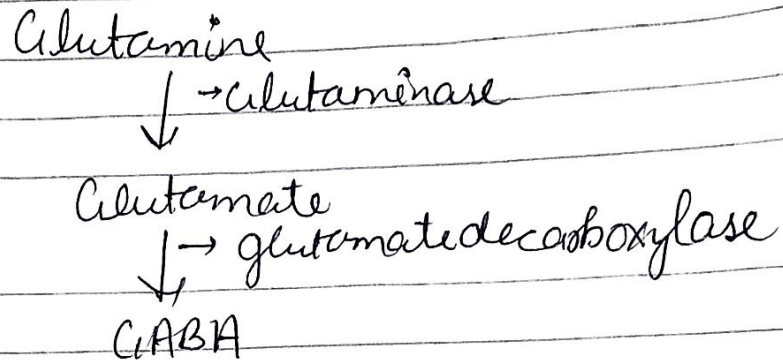 Glutamine
→ Glutaminase
Glutamate
→ glutamatedecarboxylase
GABA